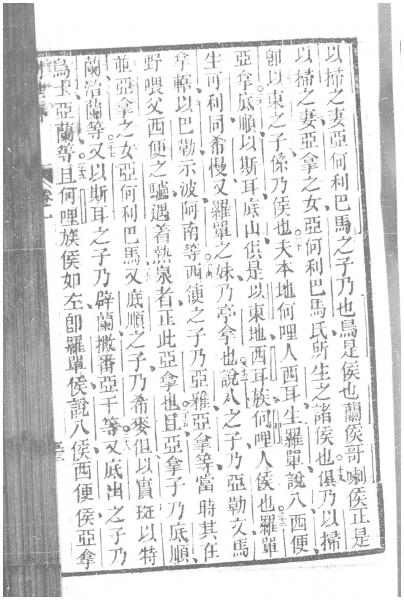 以掃之妻亞何利巴馬之子乃也烏是侯也蘭侯哥喇侯正是
以掃之妻亞拿之女亞何利巴馬氏所生之諸侯也俱乃以掃
卽以東之子係乃侯也夫本地何哩人西耳生羅單說八西便
亞拿底順以斯耳底山俱是以東地西耳族何哩人侯也羅單
生可利同希慢又羅單之妹乃亭拿也說八之子乃亞勒文馬
拿轄以巴勒示波阿南等西便之子乃亞雅亞拿等當時其在
野喂父西便之驢遇着熱泉者正此亞拿也且亞拿子乃底順
並亞拿之女亞何利巴馬又底順之子乃希麥但以實班以特
蘭治蘭等又以斯耳之子乃辟蘭撒番亞干等又底山之子乃
烏士亞蘭等且何哩族侯如左卽羅單侯說八侯西便侯亞拿